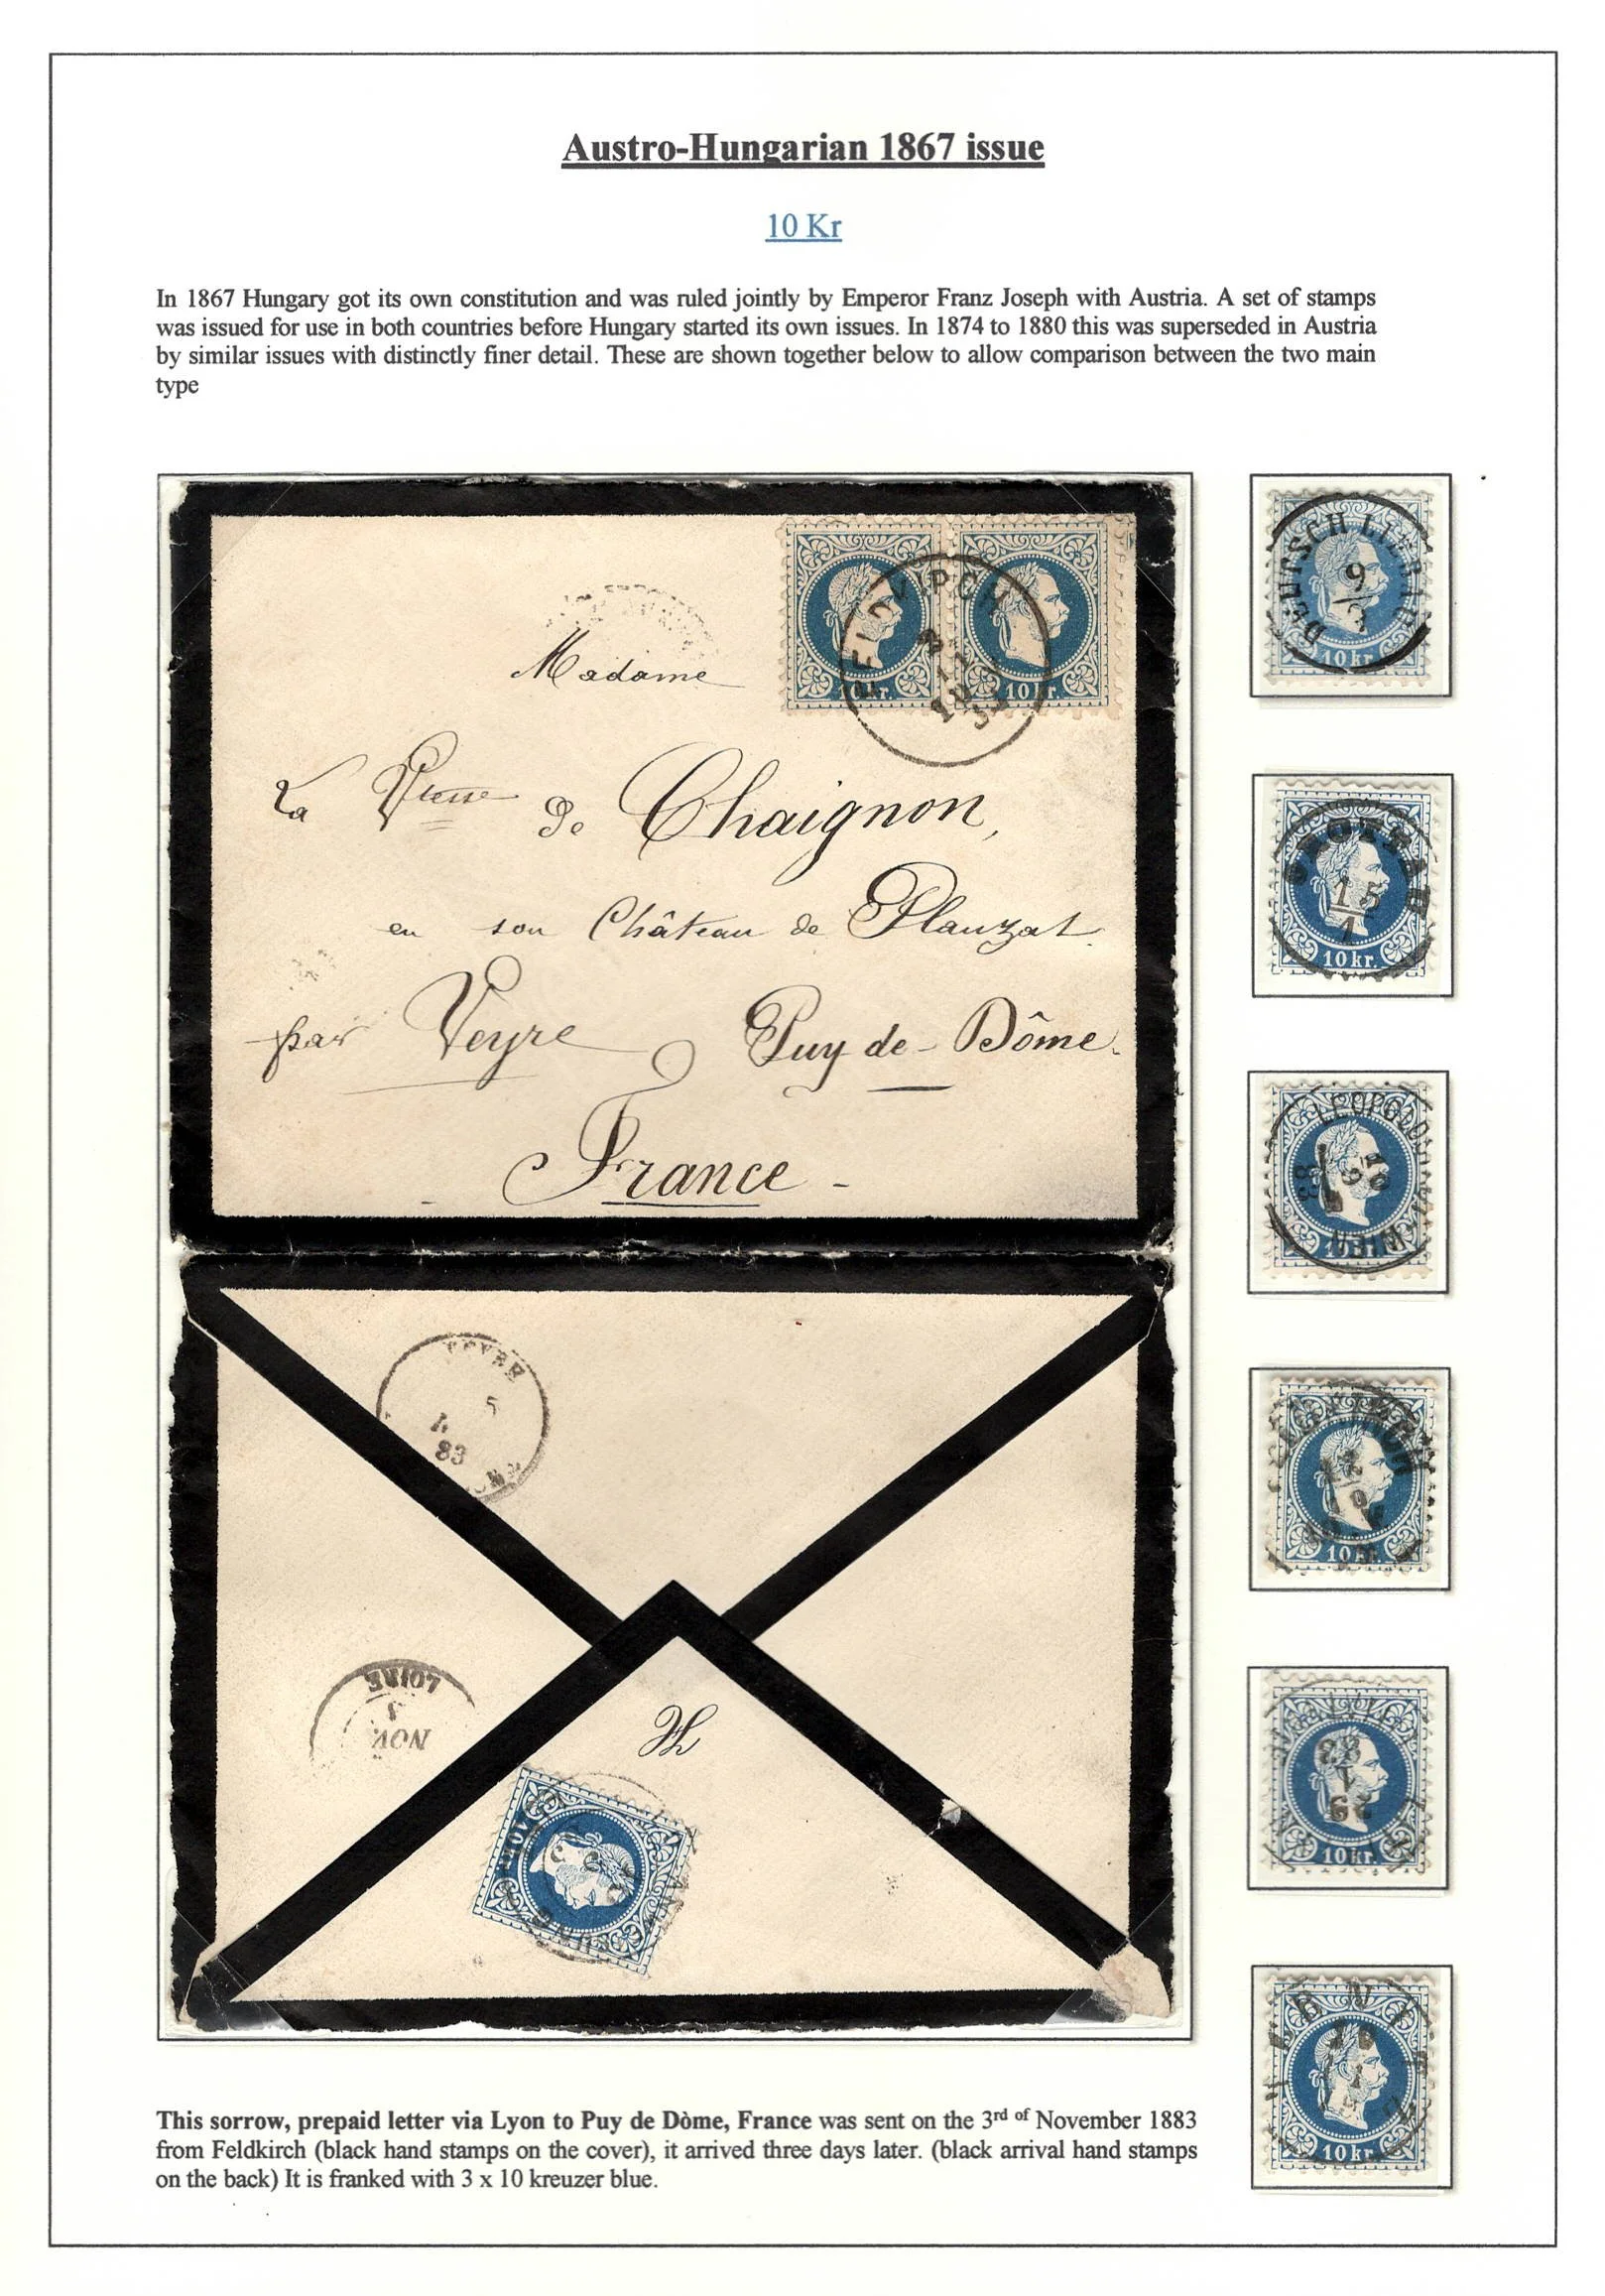 Austro-Hungarian 1867 issue
10 Kr
In 1867 Hungary got its own constitution and was ruled jointly by Emperor Franz Joseph with Austria. A set of stamps
was issued for use in both countries before Hungary started its own issues. In 1874 to 1880 this was superseded in Austria
by similar issues with distinctly finer detail. These are shown together below to allow comparison between the two main
type
10 kr.
10 kr.
Madame
La de Chaignon,
en son Château de Plauzat.
par Veyre Puy-de-Dôme.
France
83
LOIRE
NOV
10 kr.
DEUTSCH
9
10 kr.
15
1
10 kr.
LEOPOLDST
WIEN
83
10 kr.
10 kr.
83
1
10 kr.
10 kr.
This sorrow, prepaid letter via Lyon to Puy de Dòme, France was sent on the 3rd of November 1883
from Feldkirch (black hand stamps on the cover), it arrived three days later. (black arrival hand stamps
on the back) It is franked with 3 x 10 kreuzer blue.